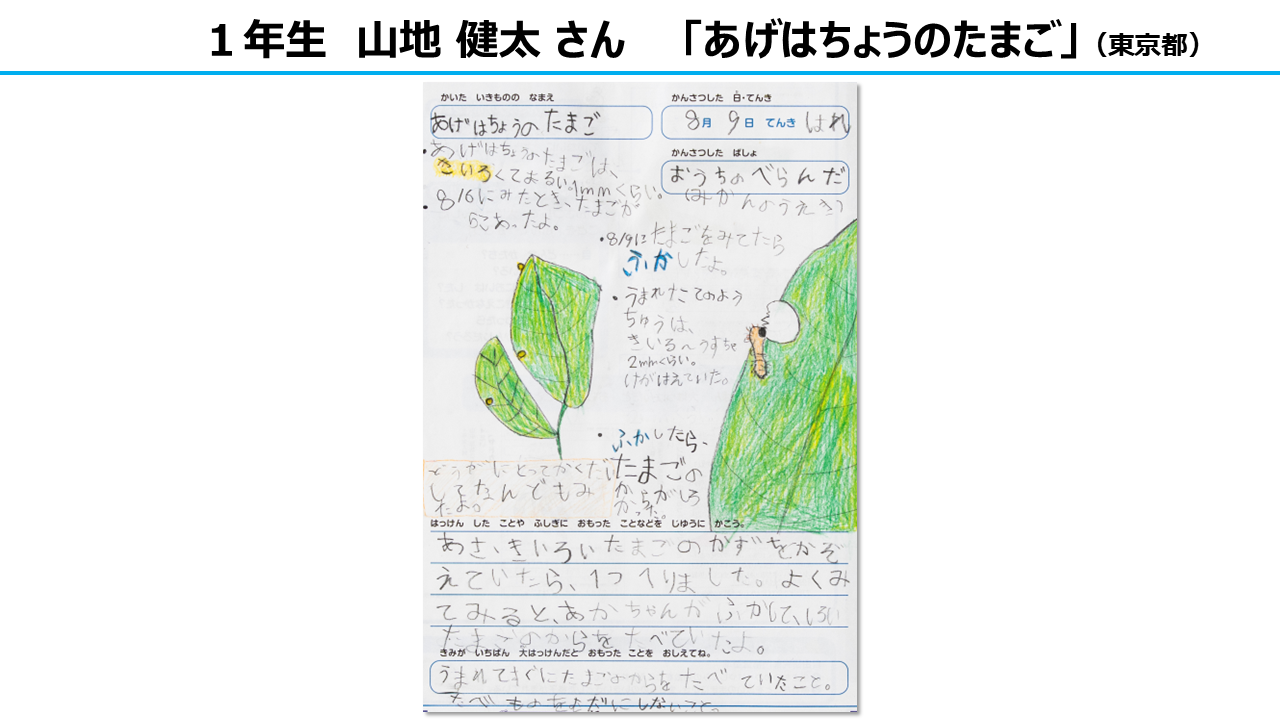 １年生　山地 健太 さん　「あげはちょうのたまご」（東京都）
かいた　いきものの　なまえ
あげはちょうの たまご
かんさつした　日・てんき
8月 9日 てんき はれ
かんさつした　ばしょ
おうちのべらんだ
(みかんのようえき)
・あげはちょうのたまごは、
きいろくてまるい。1mmくらい。
・8/6にみたとき、たまごが
らこあったよ。
・8/9にたまごをみてたら
ふかしたよ。
・うまれたてのよう
ちゅうは、
きいろ～うすちゃ
2mmくらい。
けがはえていた。
・ふかしたら、
たまごの
からがしろ
かった。
どうがにとってかくだい
してなんどもみ
たよ。
はっけん　した　ことや　ふしぎに　おもった　ことなどを　じゆうに　かこう。
あさ、きいろいたまごのかずをかぞ
えていたら、1つへりました。よくみ
てみると、あかちゃんがふかして、しろい
たまごのからをたべていたよ。
きみが　いちばん　大はっけんだと　おもった　ことを　おしえてね。
うまれてすぐにたまごのからをたべていたこと。
たべものをむだにしないこと。